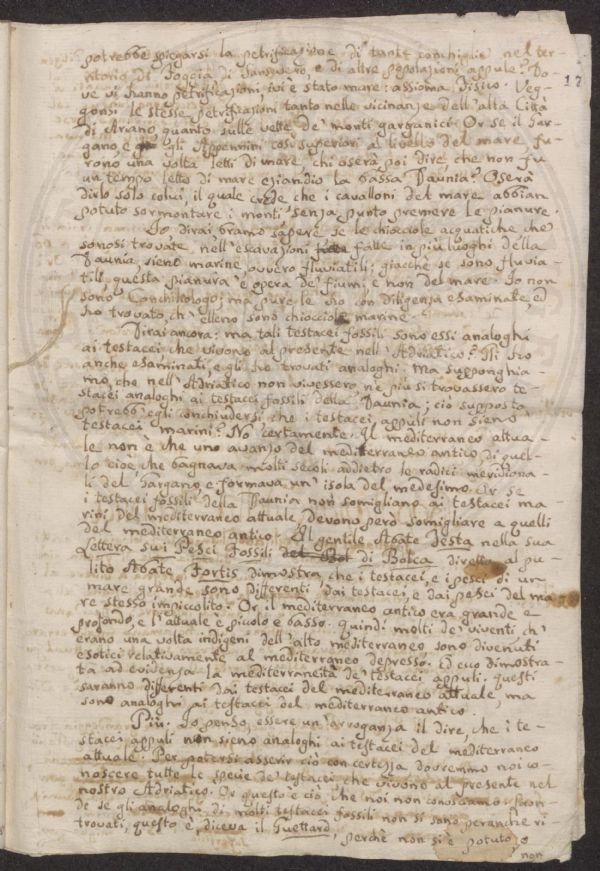 potrebbe spiegarsi la petrificazione di tante conchiglie nel ter-
ritorio di Foggia di Sansevero, e di altre popolazioni appule? Do-
17
ve vi hanno petrificazioni, ivi è stato mare: assioma Fisico. Veg-
gonsi le stesse petrificazioni tanto nelle vicinanze dell'alta Città
di Ariano, quanto sulle vette de' monti garganici. Or se il Gar-
gano, e gli Appennini così superiori al livello del mare, fu-
rono una volta letti di mare, chi oserà poi dire, che non fu
un tempo letto di mare eziandio la bassa Daunia? Oserà
dirlo solo colui, il quale crede che i cavalloni del mare abbian
potuto sormontare i monti senza punto premere le pianure.
Io, dirai, bramo sapere se le chiocciole acquatiche che
sonosi trovate nell'escavazioni fatte in più luoghi della
Daunia, sieno marine, ovvero fluviatili; giacchè se sono fluvia-
tili, questa pianura è opera de' fiumi, e non del mare. Io non
sono Conchitologo; ma pure le ho con diligenza esaminate, ed
ho trovato, ch'elleno sono chiocciole marine.
Dirai ancora: ma tali testacei fossili sono essi analoghi
ai testacei che vivono al presente nell'Adriatico? Gli ho
anche esaminati, e gli ho trovati analoghi. Ma supponghia-
mo, che nell'Adriatico non vivessero, nè più si trovassero te-
stacei analoghi ai testacei fossili della Daunia; ciò supposto
potrebb'egli conchiudersi che i testacei appuli non sieno
testacei marini? No certamente. Il mediterraneo attua-
le non è che uno avanzo del mediterraneo antico di quel-
lo cioè, che bagnava molti secoli addietro le radici meridiona-
li del Gargano, e formava un'isola del medesimo. Or se
i testacei fossili della Daunia non somigliano ai testacei ma-
rini del mediterraneo attuale devono però somigliare a quelli
del mediterraneo antico. Il gentile Abate Testa nella sua
Lettera su i Pesci Fossili del Bol di Bolca diretta al pu-
lito Abate Fortis dimostra, che i testacei, e i pesci di un
mare grande sono differenti dai testacei, e dai pesci del ma-
re stesso impiccolito. Or il mediterraneo antico era grande e
profondo, e l'attuale è picolo e basso. quindi molti de' viventi ch'
erano una volta indigeni dell'alto mediterraneo sono divenuti
esotici relativamente al mediterraneo depresso. Ecco dimostra-
ta ad evidenza la mediterraneità de' testacei appuli. questi
saranno differenti dai testacei del mediterraneo attuale, ma
sono analoghi ai testacei del mediterraneo antico.
Più. Io penso, essere un'arroganza il dire, che i te-
stacei appuli non sieno analoghi ai testacei del mediterraneo
attuale. Per potersi asserir ciò con certezza dovremmo noi co-
noscere tutte le specie de' testacei che vivono al presente nel
nostro Adriatico. Or questo è ciò, che noi non conosciamo.
de se gli analoghi di molti testacei fossili non si sono peranche ri
trovati, questo è, diceva il Guettard, perchè non si è potuto, o
non